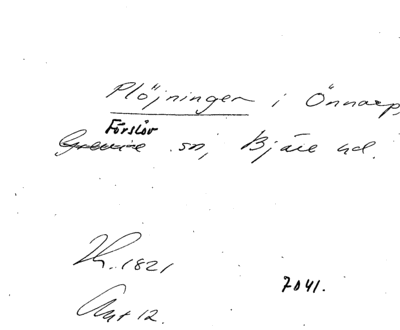 Plöjningen i Önnarp,
Förslöv
sn, Bjäre hd.
1821
7041.
12.